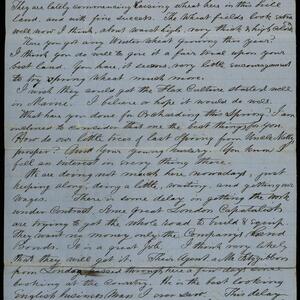 They are lately commencing raising wheat here in this fresh
land, and with fine success. The Wheat fields look extra
well now I think, about waist high, very thick & high colored
Have you got any Winter Wheat growing this year?
I think you need to give it a fair trial upon your
best land. You have it seems, very little encouragement
to try Spring Wheat much more.
I wish they could get the Flax Culture started well
in Maine. I believe or hope it would do well.
What has you done for Orcharding this Spring? I am
inclined to consider that one of the best things for you.
How do our little trees of last Spring from Uncle
prosper? And Your young Nursery. You know I
full an interest in every thing there.
We are doing not much here nowadays, just
keeping along, doing a little, waiting, and getting our
wages. There is some delay on getting the work
under Contract. Some great London Capitalists
are trying to get the whole Road to build & equip.
They want no money only the Company's Land
Bonds. It is a great Job. I think this delay
that they will get it. Their Agent a Mr Fitzgibbon
from London passed through here a few days since
looking at the Country. He is the best looking
English business Man I ever saw. This delay